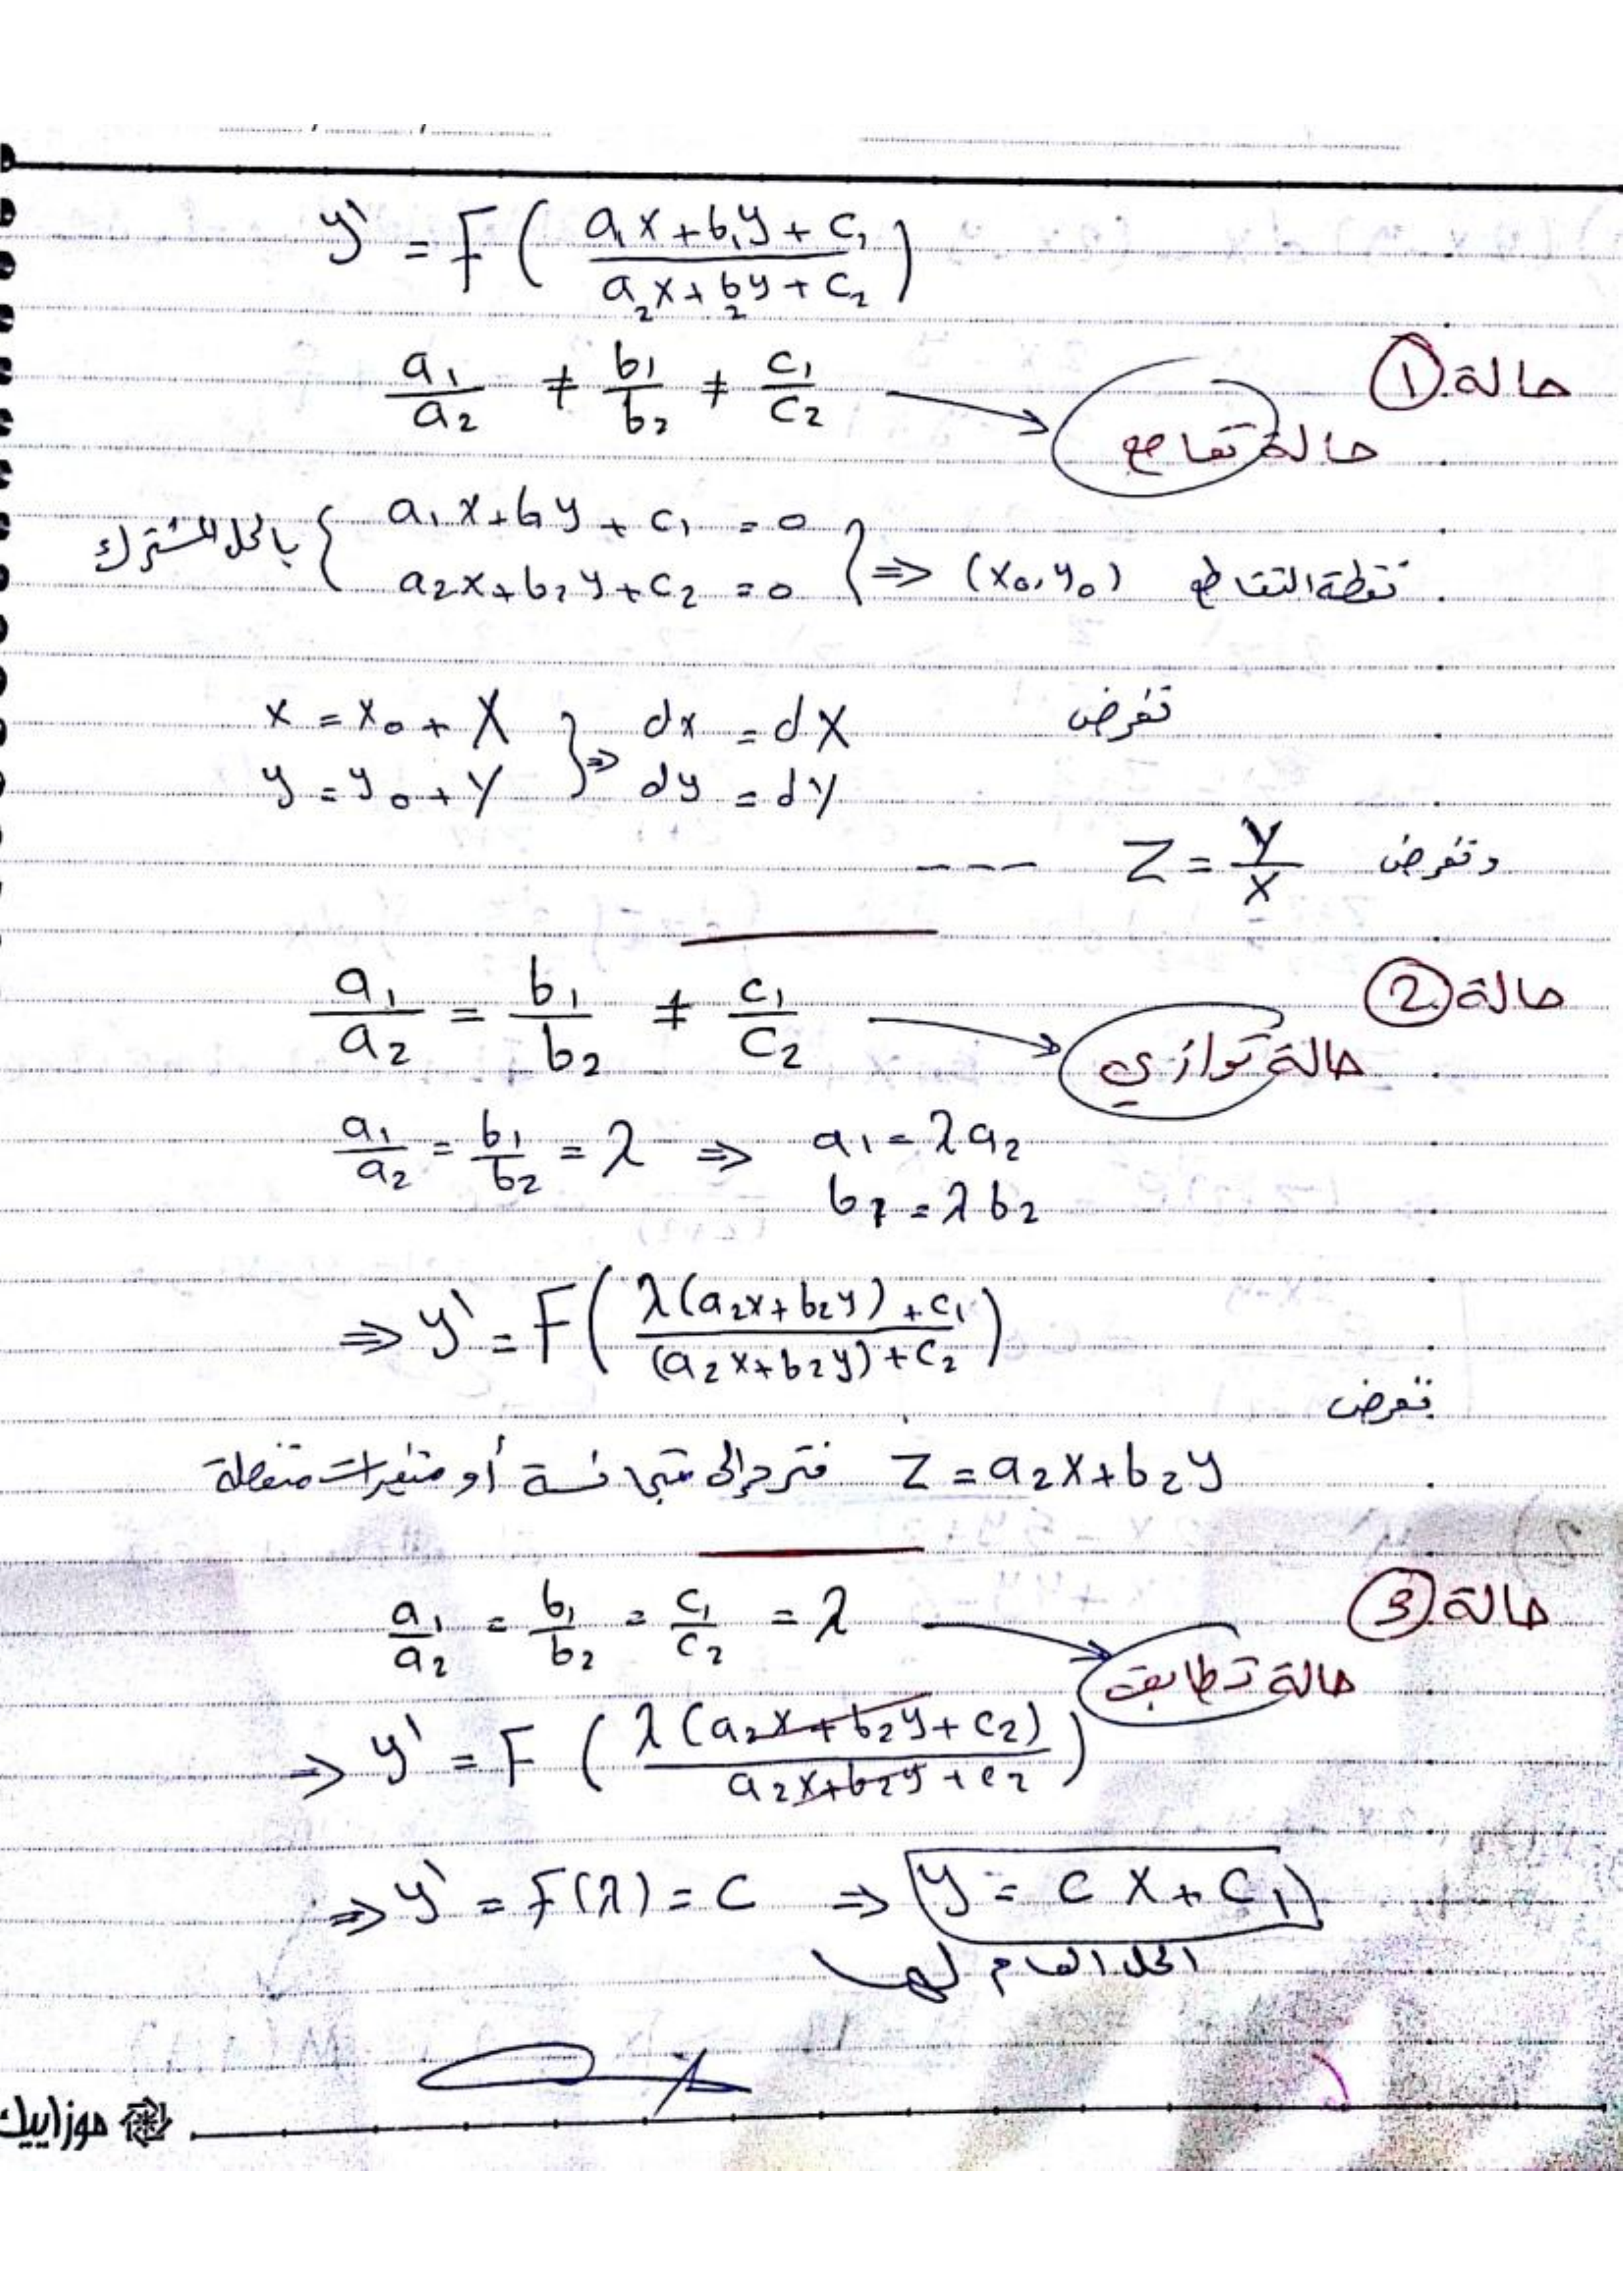 y' = F ( (a₁x + b₁y + c₁) / (a₂x + b₂y + c₂) )
حالة ①
a₁/a₂ ≠ b₁/b₂ ≠ c₁/c₂ → حالة تقاطع
بالحل المشترك { a₁x + b₁y + c₁ = 0
a₂x + b₂y + c₂ = 0 } ⇒ (x₀, y₀) نقطة التقاطع
نفرض x = x₀ + X } ⇒ dx = dX
y = y₀ + Y dy = dY
ونفرض Z = Y/X ---
حالة ②
a₁/a₂ = b₁/b₂ ≠ c₁/c₂ → حالة توازي
a₁/a₂ = b₁/b₂ = λ ⇒ a₁ = λa₂
b₁ = λb₂
⇒ y' = F ( (λ(a₂x + b₂y) + c₁) / ((a₂x + b₂y) + c₂) )
نفرض
Z = a₂x + b₂y فترد إلى متجانسة أو متغيرات منفصلة
حالة ③
a₁/a₂ = b₁/b₂ = c₁/c₂ = λ → حالة تطابق
⇒ y' = F ( λ(a₂x + b₂y + c₂) / (a₂x + b₂y + c₂) )
⇒ y' = F(λ) = C ⇒ y = C x + C₁
الحل العام لها
موزاييك